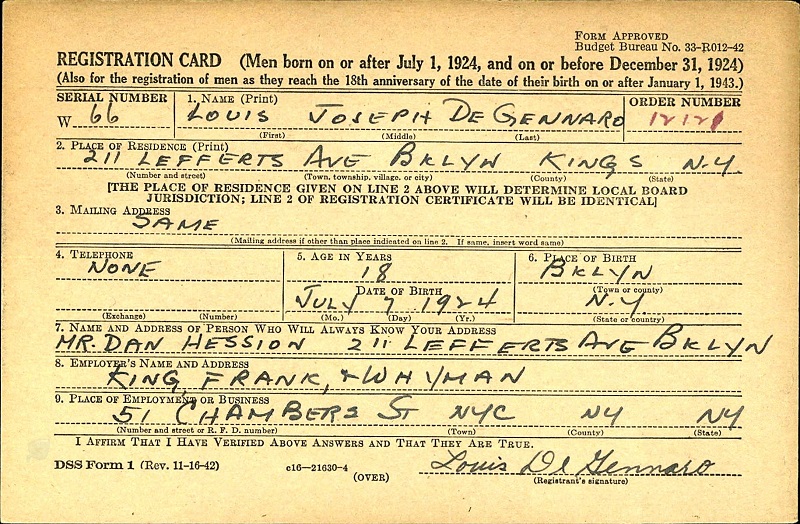 FORM APPROVED
Budget Bureau No. 33-R012-42
REGISTRATION CARD (Men born on or after July 1, 1924, and on or before December 31, 1924)
(Also for the registration of men as they reach the 18th anniversary of the date of their birth on or after January 1, 1943.)
SERIAL NUMBER 1. NAME (Print) ORDER NUMBER
W 66 LOUIS JOSEPH DE GENNARO 12121
(First) (Middle) (Last)
2. PLACE OF RESIDENCE (Print)
211 LEFFERTS AVE BKLYN KINGS N.Y.
(Number and street) (Town, township, village, or city) (County) (State)
[THE PLACE OF RESIDENCE GIVEN ON LINE 2 ABOVE WILL DETERMINE LOCAL BOARD
JURISDICTION; LINE 2 OF REGISTRATION CERTIFICATE WILL BE IDENTICAL]
3. MAILING ADDRESS
SAME
(Mailing address if other than place indicated on line 2. If same, insert word same)
4. TELEPHONE 5. AGE IN YEARS 6. PLACE OF BIRTH
NONE 18 BKLYN
DATE OF BIRTH (Town or county)
JULY 7 1924 N.Y.
(Exchange) (Number) (Mo.) (Day) (Yr.) (State or country)
7. NAME AND ADDRESS OF PERSON WHO WILL ALWAYS KNOW YOUR ADDRESS
MR. DAN HESSION 211 LEFFERTS AVE BKLYN
8. EMPLOYER'S NAME AND ADDRESS
KING, FRANK, + WHYMAN
9. PLACE OF EMPLOYMENT OR BUSINESS
51 CHAMBERS ST NYC NY NY
(Number and street or R. F. D. number) (Town) (County) (State)
I AFFIRM THAT I HAVE VERIFIED ABOVE ANSWERS AND THAT THEY ARE TRUE.
DSS Form 1 (Rev. 11-16-42) c16—21630-4 Louis De Gennaro
(OVER) (Registrant's signature)